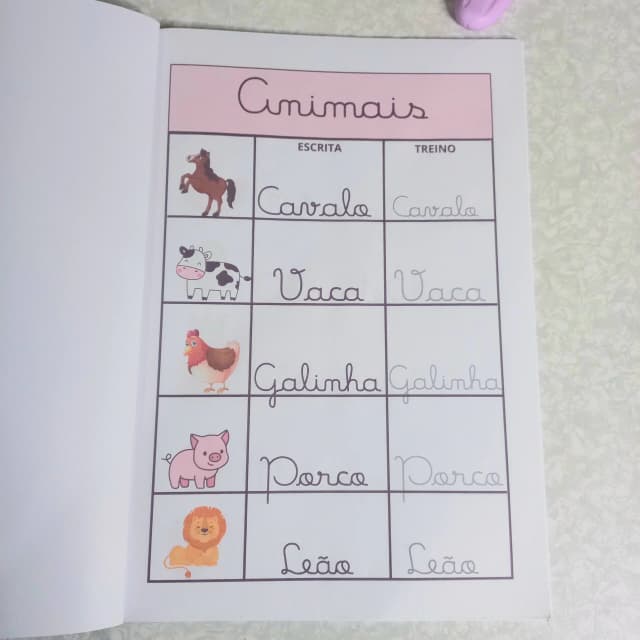 Animais
ESCRITA TREINO
Cavalo Cavalo
Vaca Vaca
Galinha Galinha
Porco Porco
Leão Leão